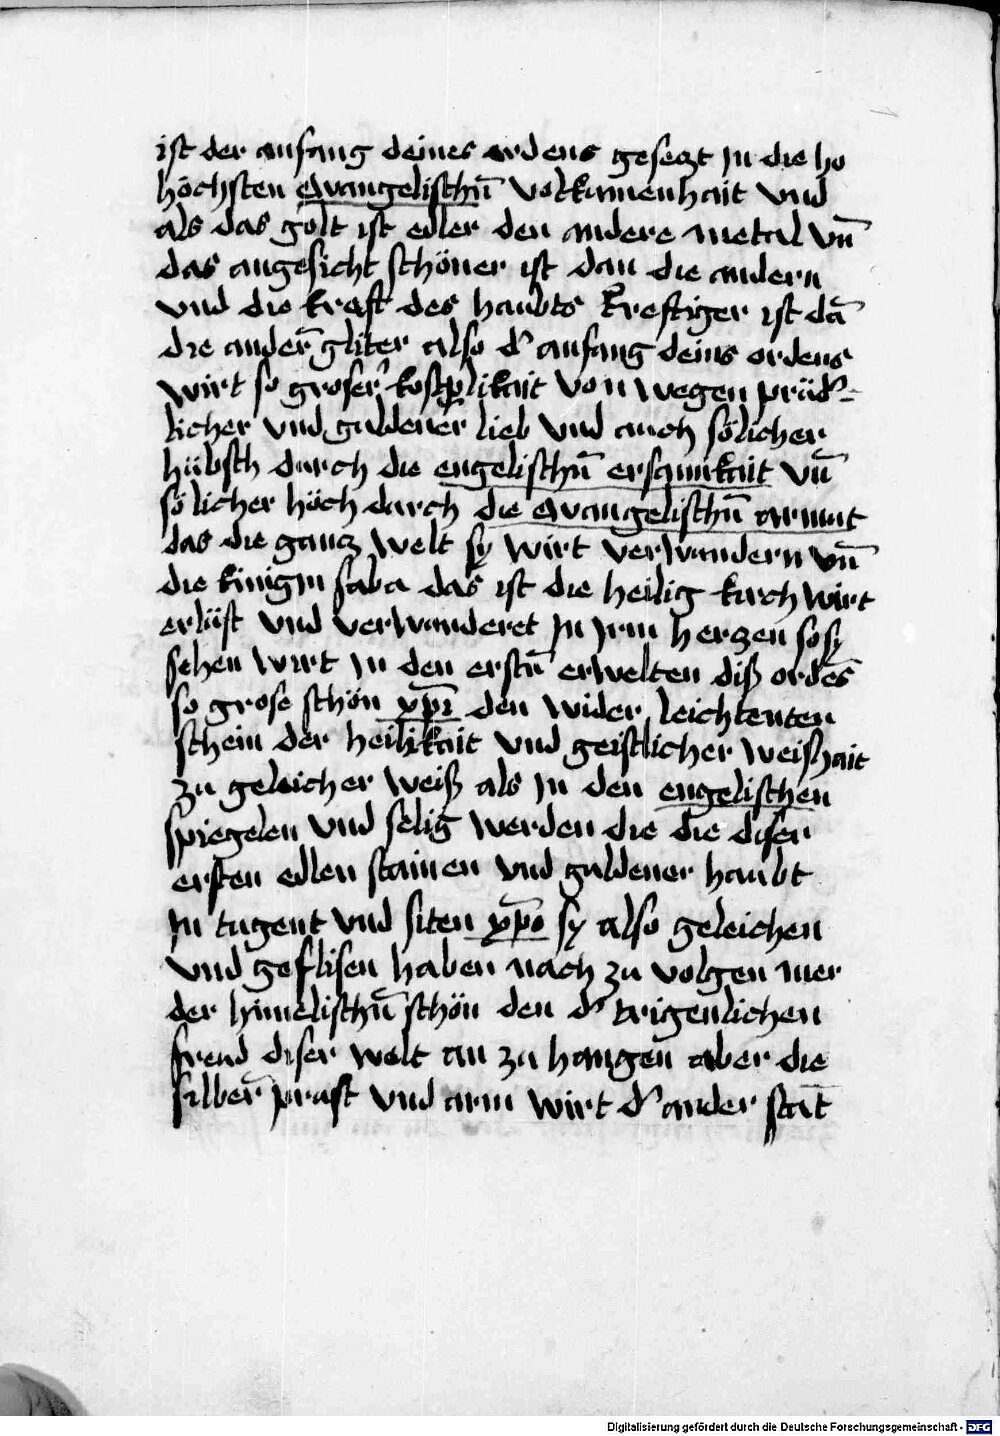 ist der anfang deines ordens gesetzt Jn die ho
höchsten evangelischn̄ volkumenhait vnd
als das golt ist edler den andere metal vn̄
das angesicht schöner ist dan die andern
vnd die kraft des haubts kreftiger ist dā
die ander̄ gliter also d' anfang deins ordens
wirt so groser kostp̲likait von wegen prüd'-
licher vnd guldener lieb vnd auch sölicher
hübsch durch die engelischn̄ ersamkait vn̄
sölicher höch durch die evangelischn̄ armut
das die gancz welt sy wirt verwundern vn̄
die kinigin saba das ist die heilig kirch wirt
erlüst vnd verwunderet Jn Jrm herzen so sy
sehen wirt Jn den erstn̄ erwelten diß ordēs
so grose schön xp̄i den wider leichtenten
schein der heilikait vnd geistlicher weißhait
zu geleicher weiß als Jn den engelischen
spiegelen vnd selig werden die die diser
ersten edlen stainen vnd guldener haubt
Jn tugent vnd siten xp̄o sy also geleichen
vnd geflisen haben nach zu volgen mer
der himelischn̄ schön den d' trigenlichen
freud diser welt an zu hangen aber die
silber̄ prust vnd arm wirt d' ander stat
Digitalisierung gefördert durch die Deutsche Forschungsgemeinschaft - DFG